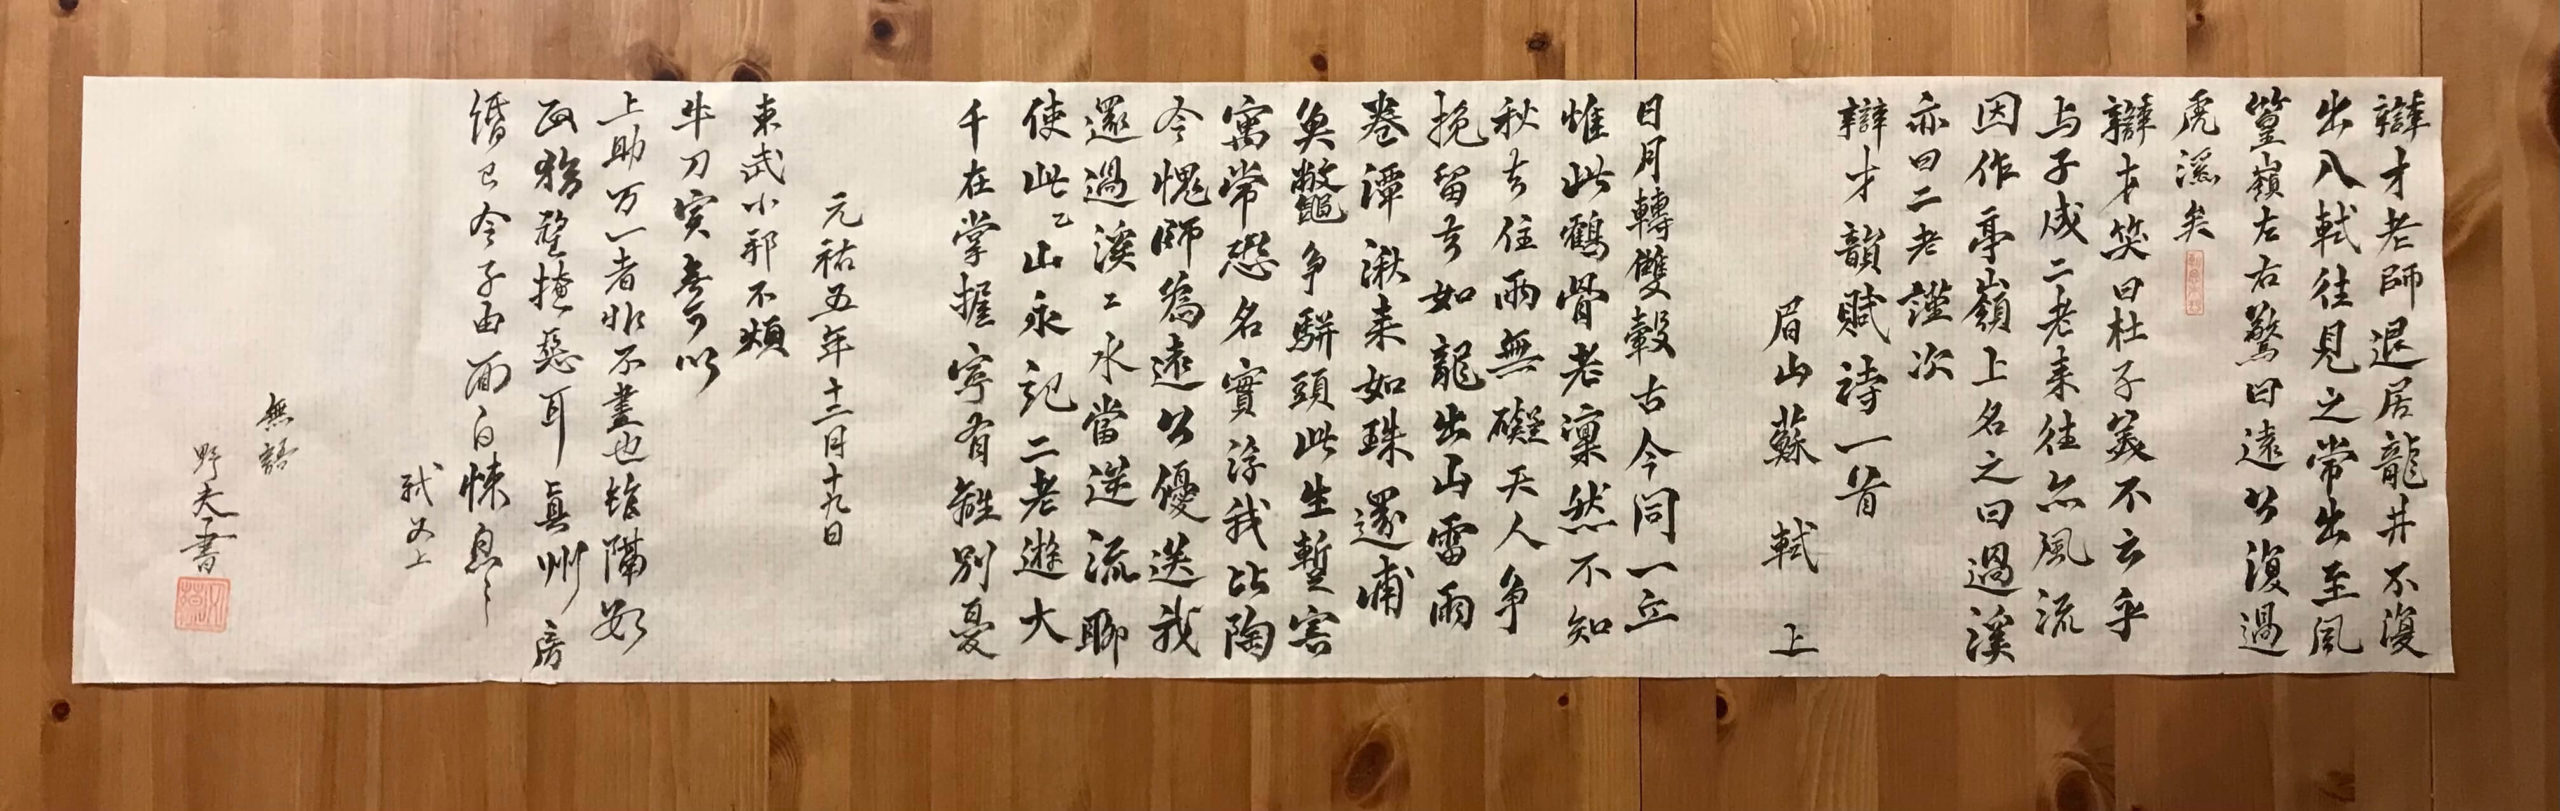 辯才老師退居龍井不復
出入軾往見之常出至風
篁嶺左右驚曰遠公復過
虎溪矣
辯才笑曰杜子美不云乎
与子成二老来往亦風流
因作亭嶺上名之曰過溪
亦曰二老謹次
辯才韻賦詩一首
眉山蘇軾上
日月轉雙轂古今同一丘
惟此鶴骨老凜然不知
秋去住兩無礙天人争
挽留去如龍出山雷雨
卷潭湫来如珠還浦
魚鼈争駢頭此生暫寄
寓常恐名實浮我比陶
令愧師為遠公優送我
還過溪〻水當逆流聊
使此山永記二老遊大
千在掌握寧有離別憂
元祐五年十二月十九日
東武小邦不煩
牛刀實無可以
上助万一者非不盡也雖隔數
政猶望掩惡耳真州房
緡已令子由面白悚息〻
軾又上
無語
野夫書